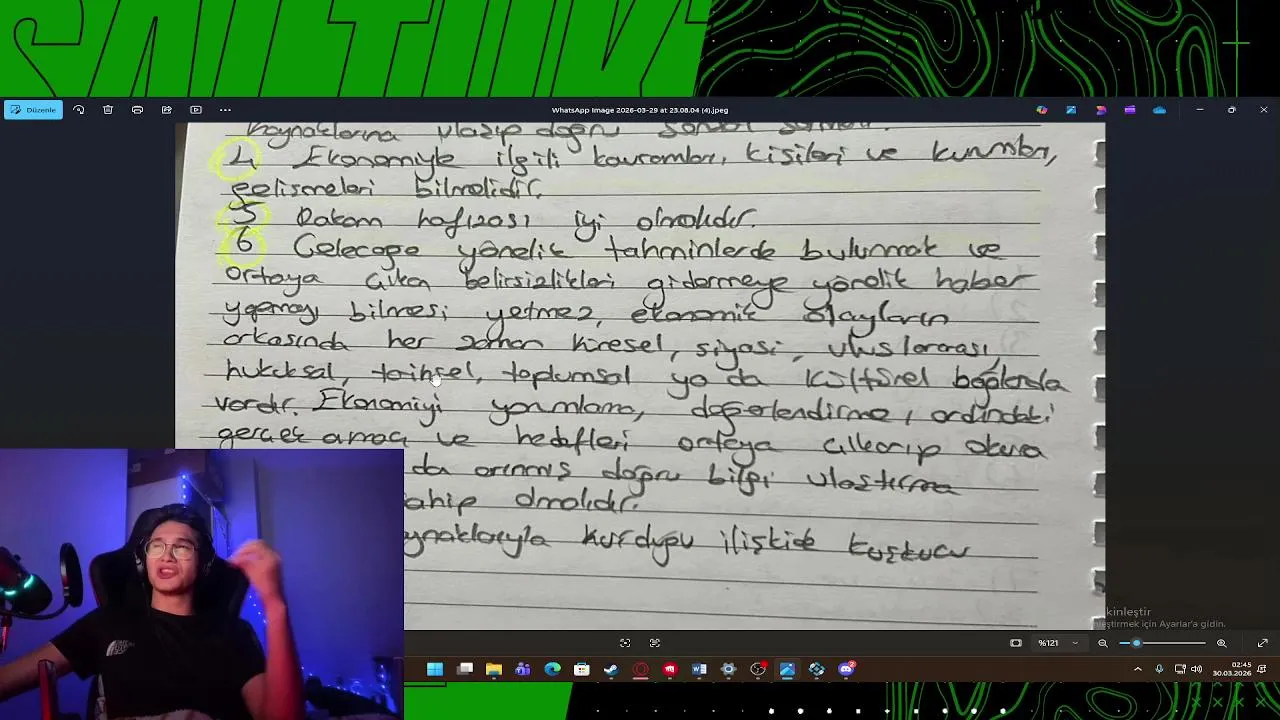 Düzenle
WhatsApp Image 2026-03-29 at 23.08.04 (4).jpeg
kaynaklarına ulaşıp doğru
4 Ekonomiyle ilgili kavramları, kişileri ve kurumları,
gelişmeleri bilmelidir.
5 Rakam hafızası iyi olmalıdır.
6 Geleceğe yönelik tahminlerde bulunmak ve
ortaya çıkan belirsizlikleri gidermeye yönelik haber
yapmayı bilmesi yetmez, ekonomik olayların
arkasında her zaman küresel, siyasi, uluslararası,
hukuksal, tarihsel, toplumsal ya da kültürel bağlarda
vardır. Ekonomiyi yorumlama, değerlendirme, ardındaki
gerçek amaç ve hedefleri ortaya çıkarıp okura
da arınmış doğru bilgi ulaştırma
ahip olmalıdır.
ynaklarıyla kurduğu ilişkide kuşkucu
kinleştir
nleştirmek için Ayarlar'a gidin.
%121
02:45
30.03.2026